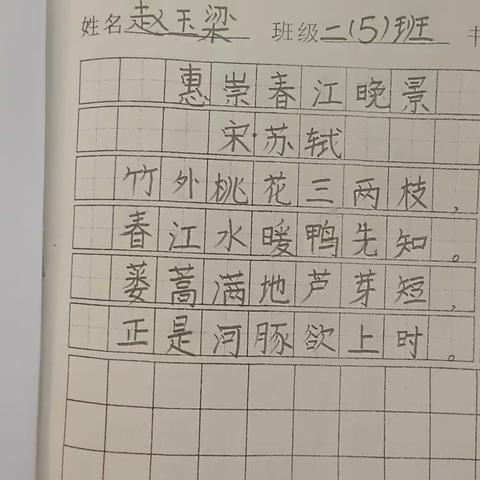 姓名赵玉梁 班级二(5)班
惠崇春江晚景
宋·苏轼
竹外桃花三两枝，
春江水暖鸭先知。
蒌蒿满地芦芽短，
正是河豚欲上时。